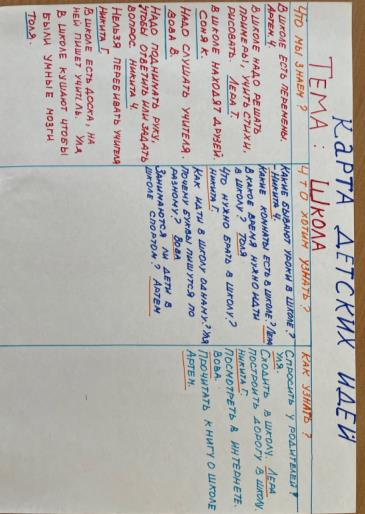 КАРТА ДЕТСКИХ ИДЕЙ
ТЕМА: ШКОЛА
ЧТО МЫ ЗНАЕМ?
В ШКОЛЕ ЕСТЬ ПЕРЕМЕНЫ.
АРТЕМ Ч.
В ШКОЛЕ НАДО РЕШАТЬ
ПРИМЕРЫ, УЧИТЬ СТИХИ,
РИСОВАТЬ. ЛЕРА Т.
В ШКОЛЕ НАХОДЯТ ДРУЗЕЙ.
СОНЯ К.
НАДО СЛУШАТЬ УЧИТЕЛЯ.
ВОВА В.
НАДО ПОДНИМАТЬ РУКУ,
ЧТОБЫ ОТВЕТИТЬ ИЛИ ЗАДАТЬ
ВОПРОС. НИКИТА Ч.
НЕЛЬЗЯ ПЕРЕБИВАТЬ УЧИТЕЛЯ
НИКИТА Г.
В ШКОЛЕ ЕСТЬ ДОСКА, НА
НЕЙ ПИШЕТ УЧИТЕЛЬ. УЛЯ
В ШКОЛЕ КУШАЮТ ЧТОБЫ
БЫЛИ УМНЫЕ МОЗГИ
ТОЛЯ.
ЧТО ХОТИМ УЗНАТЬ?
КАКИЕ БЫВАЮТ УРОКИ В ШКОЛЕ?
НИКИТА Ч.
КАКИЕ КОМНАТЫ ЕСТЬ В ШКОЛЕ? ЛЕРА
В КАКОЕ ВРЕМЯ НУЖНО ИДТИ
В ШКОЛУ? ТОЛЯ
ЧТО НУЖНО БРАТЬ В ШКОЛУ?
НИКИТА Г.
КАК ИДТИ В ШКОЛУ ОДНАМУ? УЛЯ
ПОЧЕМУ БУКВЫ ПИШУТСЯ ПО
РАЗНОМУ? ВОВА
ЗАНИМАЮТСЯ ЛИ ДЕТИ В
ШКОЛЕ СПОРТОМ? АРТЕМ
КАК УЗНАТЬ?
СПРОСИТЬ У РОДИТЕЛЕЙ?
УЛЯ.
СХОДИТЬ В ШКОЛУ. ЛЕРА
ПОСТРОИТЬ ДОРОГУ В ШКОЛУ.
НИКИТА Г.
ПОСМОТРЕТЬ В ИНТЕРНЕТЕ.
ВОВА.
ПРОЧИТАТЬ КНИГУ О ШКОЛЕ
АРТЕМ.